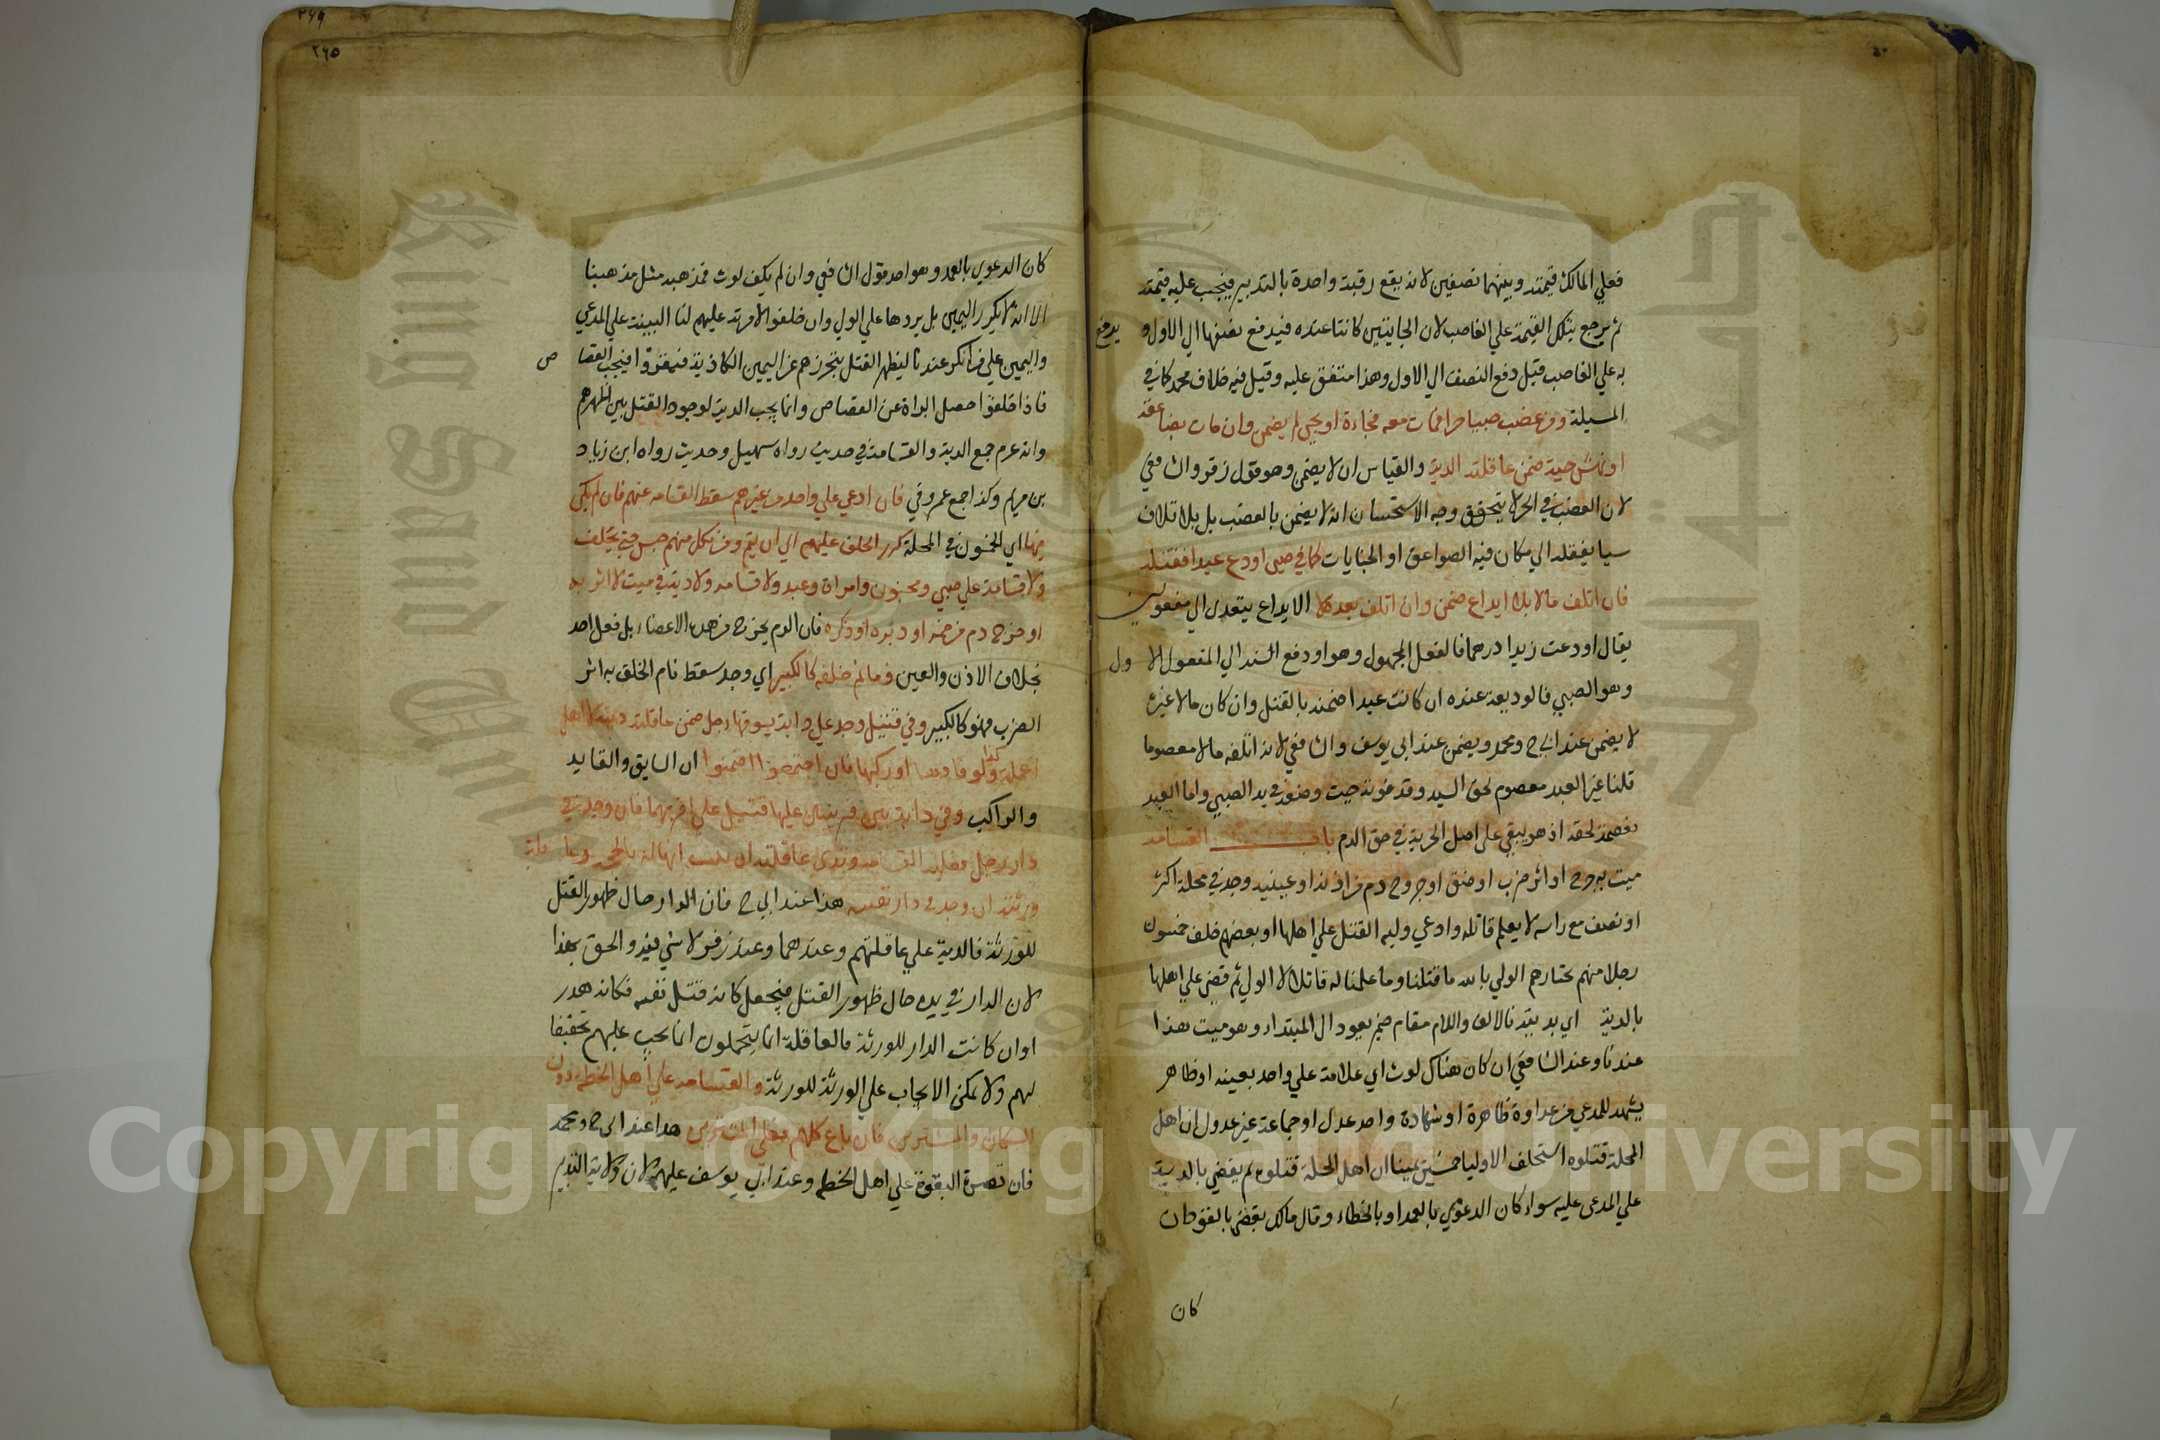 فعلي المالك قيمته وبينهما نصفين لانه يقع رقبة واحدة بالتدبير فيجب عليه قيمته
ثم يرجع بتلك القيمة علي الغاصب لان الجنايتين كانتا عنده فيدفع نصفها الي الاول و يرجع
به علي الغاصب قيل دفع النصف الي الاول وهذا متفق عليه وقيل فيه خلاف محمد كما في
المسيلة ومن غصب صبيا حرا فمات معه فجاءة او بحمي لم يضمن وان مات بصاعقة
او نهش حية ضمن عاقلته الدية والقياس ان لا يضمن وهو قول زفر والشافعي
لان الغصب في الحر لا يتحقق وجه الاستحسان انه لا يضمن بالغصب بل بالاتلاف
سببا بنقله الي مكان فيه الصواعق او الحيات كما في صبي اودع عبدا فقتله
فان اتلف مالا بلا ايداع ضمن وان اتلف بعده لا الايداع يتعدي الي مفعولين
يقال اودعت زيدا درهما فالفعل المجهول وهو اودع اسند الي المفعول الا ول
وهو الصبي فالوديعة عنده ان كانت عبدا ضمنه بالقتل وان كان مالا غيره
لا يضمن عند ابي ح ومحمد ويضمن عند ابي يوسف والشافعي لانه اتلف مالا معصوما
قلنا غير العبد معصوم لحق السيد وقد فوته حيث وضعه في يد الصبي واما العبد
فعصمته لحقه اذ هو يبقي علي اصل الحرية في حق الدم باب القسامة
ميت به جرح او اثر ضرب او خنق او خروج دم من اذنه او عينيه وجد في محلة اكثر
او نصف مع راسه لا يعلم قاتله وادعي وليه القتل علي اهلها او بعضهم حلف خمسون
رجلا منهم يختارهم الولي بالله ما قتلنا وما علمنا له قاتلا لا الولي ثم قضي علي اهلها
بالدية اي بديته فالالف واللام مقام ضمير يعود الي المبتداء وهو ميت هذا
عندنا وعند الشافعي ان كان هناك لوث اي علامة علي واحد بعينه او ظاهر
يشهد للمدعي من عداوة ظاهرة او شهادة واحد عدل او جماعة غير عدول ان اهل
المحلة قتلوه استحلف الاوليا خمسين يمينا ان اهل المحلة قتلوه ثم يقضي بالدية
علي المدعي عليه سواء كان الدعوي بالعمد او بالخطاء وقال مالك يقضي بالقود ان
كان
٢٦٥
كان الدعوي بالعمد وهو احد قول الشافعي وان لم يكن لوث فمذهبه مثل مذهبنا
الا انه لا يكرر اليمين بل يردها علي الولي وان حلفوا لا دية عليهم لنا البينة علي المدعي
واليمين علي من انكر عندنا ليظهر القتل بتحرزهم عن اليمين الكاذبة فيقروا فيجب القصا ص
فاذا حلفوا حصل البراة عن القصاص وانما يجب الدية لوجود القتل بين اظهرهم
وانه عم جمع الدية والقسامة في حديث رواه سهيل وحديث رواه ابن زياد
بن مريم وكذا جمع عمر وفي فان ادعي علي واحد من غيرهم سقط القسامة عنهم فان لم يكن
فيها اي الخمسون في المحلة كرر الحلف عليهم الي ان يتم ومن نكل منهم حبس حتي يحلف
ولا قسامة علي صبي ومجنون وامراة وعبد ولا قسامة ولا دية في ميت لا اثر به
او خرج دم من فمه او دبره او ذكره فان الدم يخرج من هذه الاعضاء بل فعل احد
بخلاف الاذن والعين وما تم خلقه كالكبير اي وجد سقط تام الخلق به اثر
الضرب فهو كالكبير وفي قتيل وجد علي دابة يسوقها رجل ضمن عاقلته ديته لا اهل
المحلة وكذا لو قادها او ركبها فان اجتمعوا ضمنوا اي السايق والقايد
والراكب وفي دابة بين قريتين عليها قتيل علي اقربهما فان وجد في
دار رجل فعليه القسامة وتدي عاقلته ان ثبت انها له بالحجة وعاقلة
ورثته ان وجد في دار نفسه هذا عند ابي ح فان الدار حال ظهور القتل
للورثة فالدية علي عاقلتهم وعندهما وعند زفر لا شي فيه والحق هذا
لان الدار في يده حال ظهور القتل فيجعل كانه قتل نفسه فكان هدر
اوان كانت الدار للورثة فالعاقلة انما يتحملون انما يجب عليهم تخفيفا
لهم ولا يمكن الايجاب علي الورثة للورثة والقسامة علي اهل الخطة دون
السكان والمشترين فان باع كلهم فعلي المشترين هذا عند ابي ح ومحمد
فان نصرة البقعة علي اهل الخطة وعند ابي يوسف عليهم لان ولاية التدبير